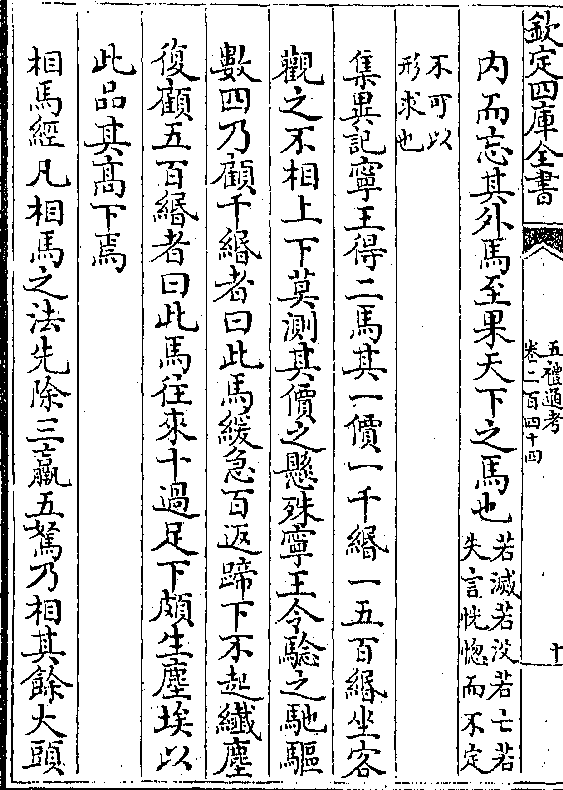 欽定四庫全書
五禮通考
卷二百四十四
十
内而忘其外馬至果天下之馬也若滅若没若亡若
失言恍惚而不定
不可以
形求也
集異記寧王得二馬其一價一千緡一五百緡坐客
觀之不相上下莫測其價之懸殊寧王令驗之馳驅
數四乃顧千緡者曰此馬緩急百返蹄下不起纎塵
復顧五百緡者曰此馬往來十過足下頗生塵埃以
此品其髙下焉
相馬經凡相馬之法先除三羸五駑乃相其餘大頭